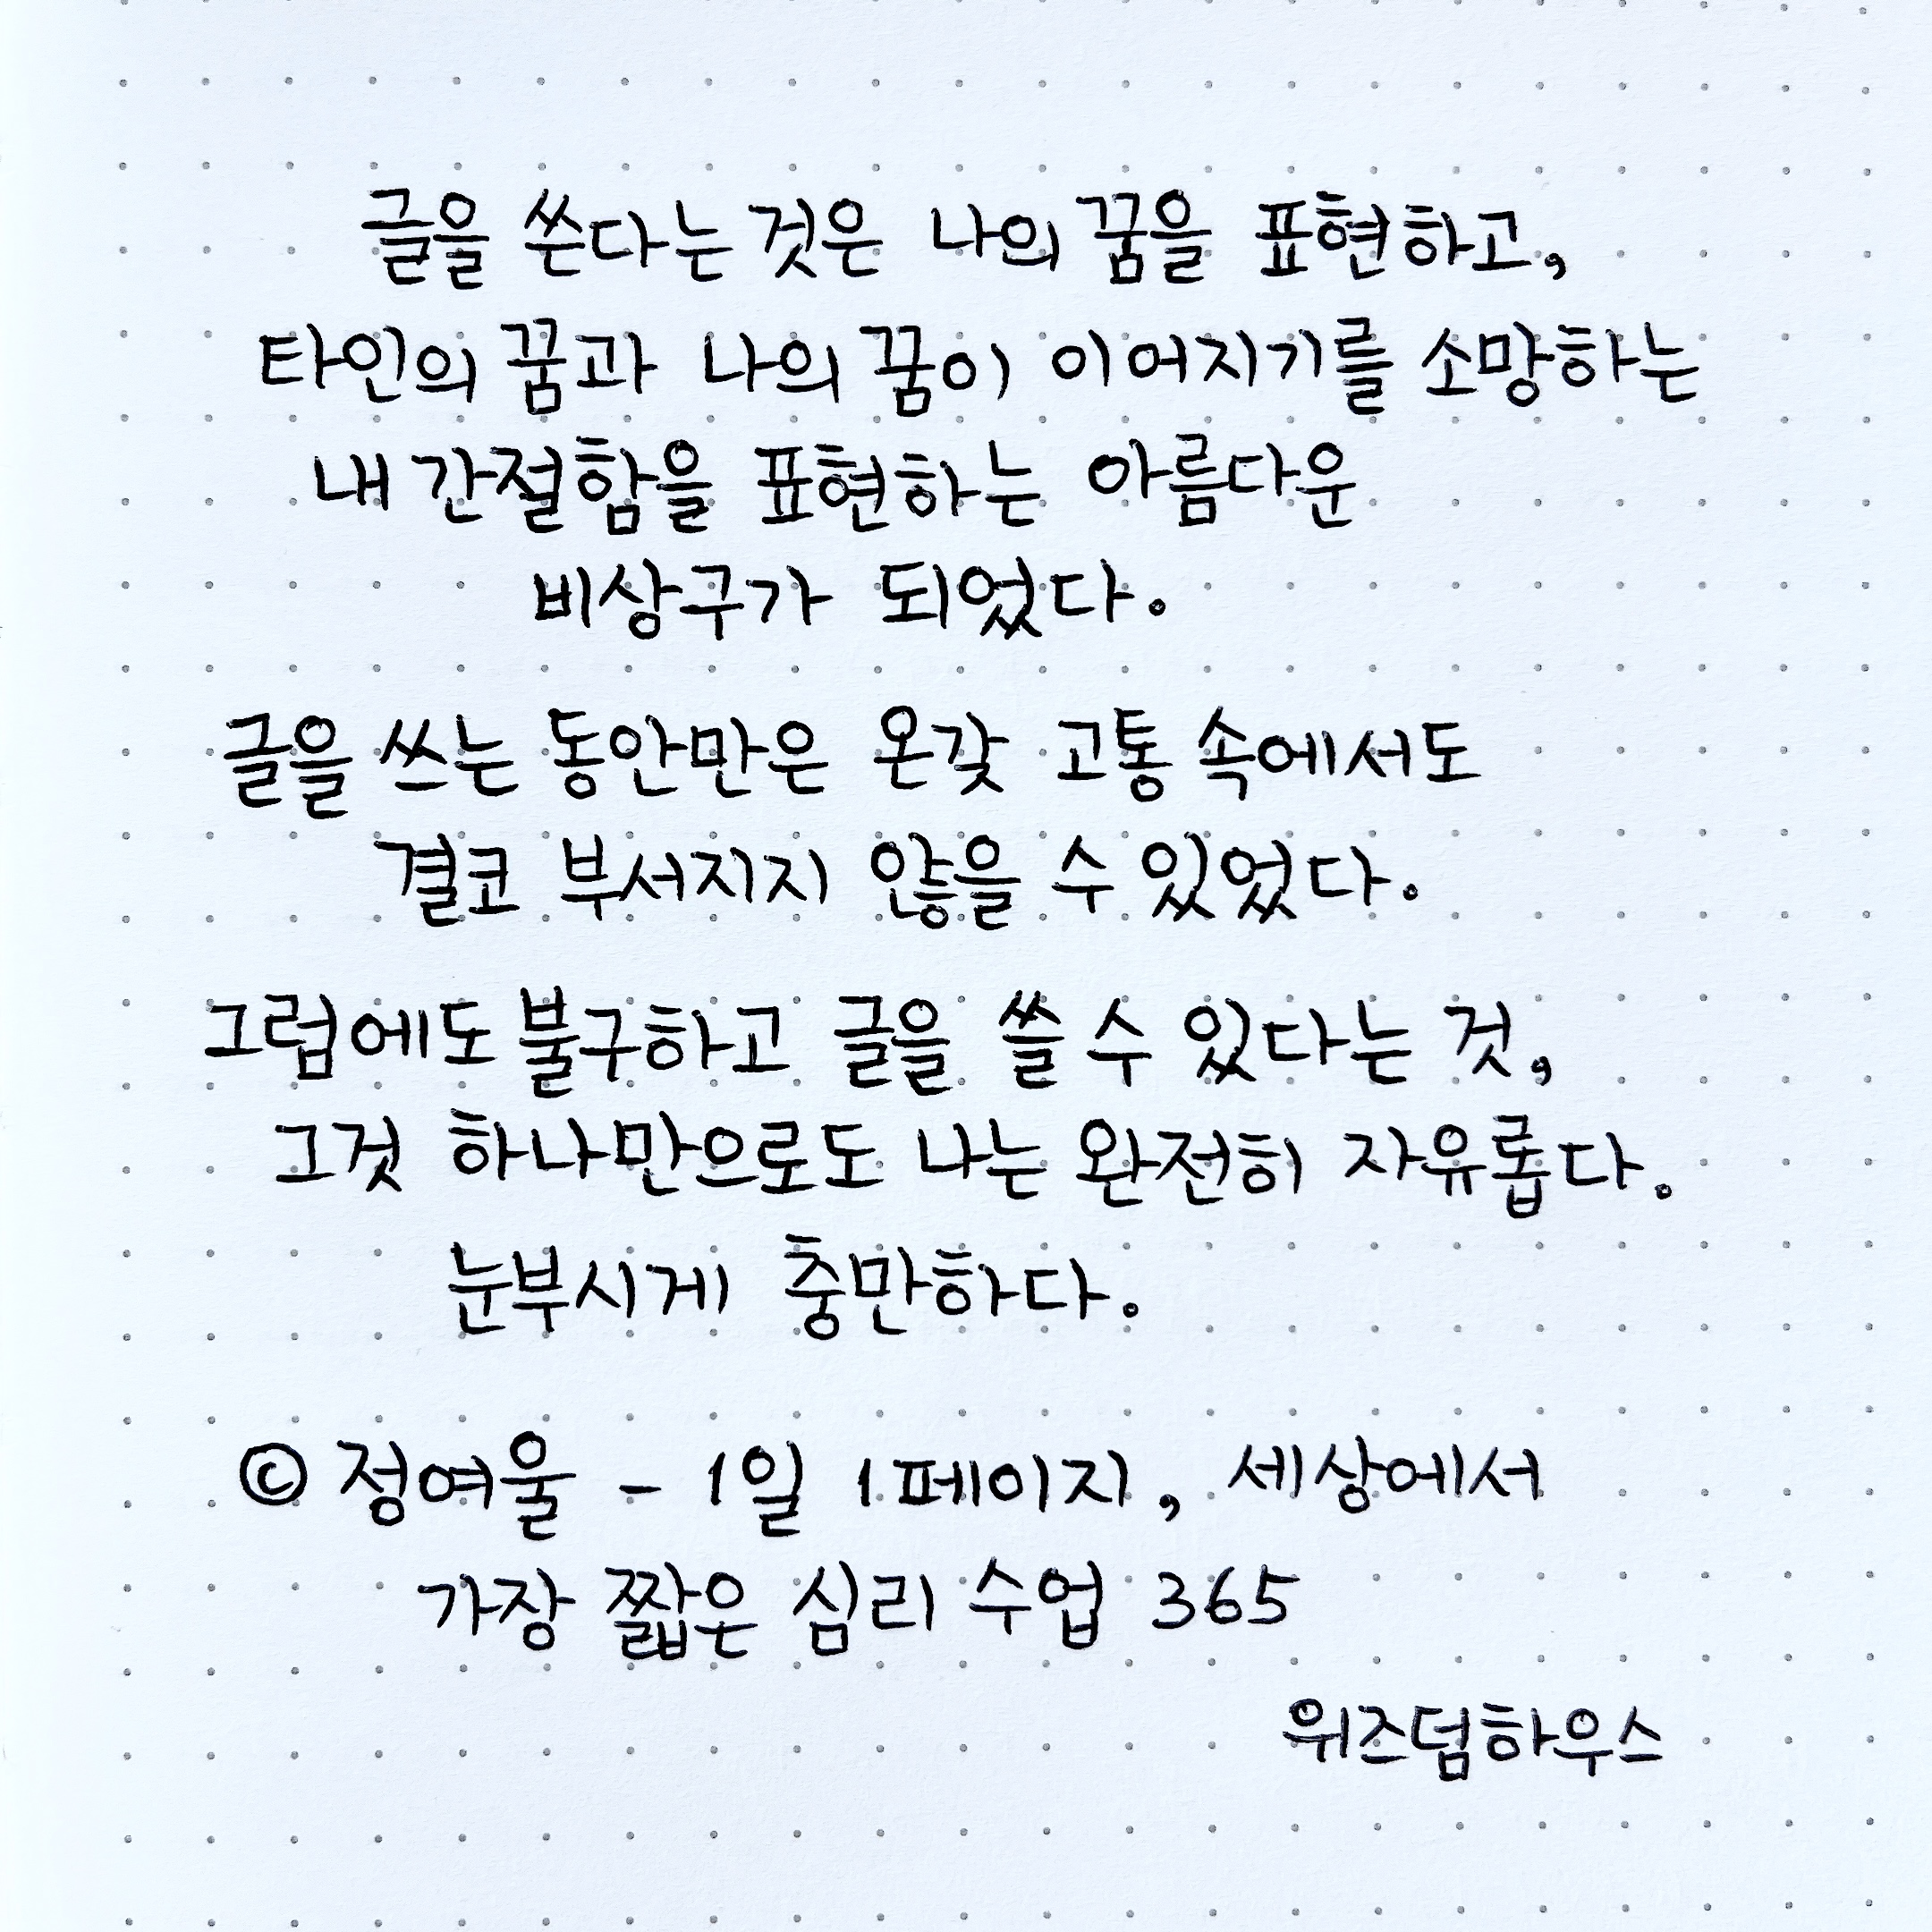 글을 쓴다는 것은 나의 꿈을 표현하고,
타인의 꿈과 나의 꿈이 이어지기를 소망하는
내 간절함을 표현하는 아름다운
비상구가 되었다.
글을 쓰는 동안만은 온갖 고통 속에서도
결코 부서지지 않을 수 있었다.
그럼에도 불구하고 글을 쓸 수 있다는 것,
그것 하나만으로도 나는 완전히 자유롭다.
눈부시게 충만하다.
© 정여울 - 1일 1페이지, 세상에서
가장 짧은 심리 수업 365
위즈덤하우스